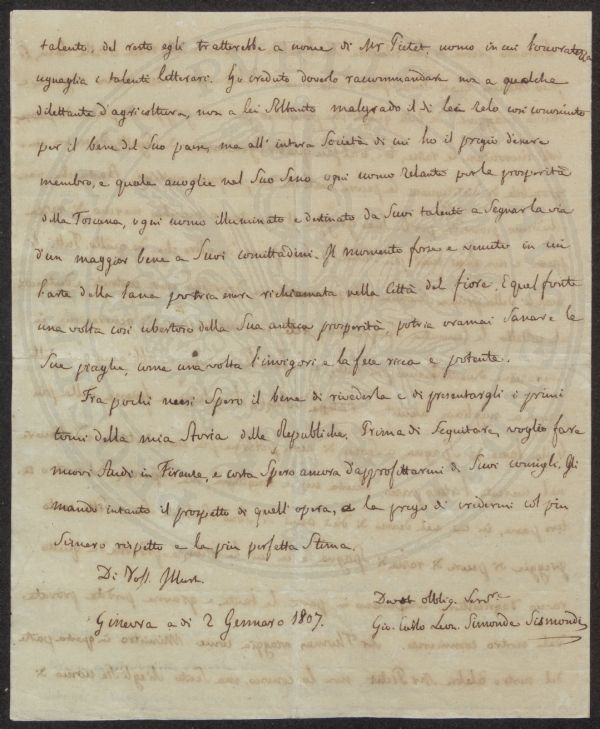 talento, del resto egli tratterebbe a nome di Mr Pictet, uomo in cui l'onoratezza
uguaglia i talenti letterari. Ho creduto doverlo raccommandare non a qualche
dilettante d'agricoltura, non a lei soltanto malgrado il di lei zelo cosi conosciuto
per il bene del Suo paese, ma all'intera Società di cui ho il pregio d'essere
membro, e quale accoglie nel Suo Seno ogni uomo zelante per la prosperità
della Toscana, ogni uomo illuminato e destinato da Suoi talenti a Segnar la via
d'un maggior bene a Suoi concittadini. Il momento forse e venuto in cui
l'arte della lana potria essere richiamata nella Città del fiore. E quel fonte
una volta cosi ubertoso della Sua antica prosperità, potria oramai Sanare le
Sue piaghe, come una volta l'invigorì e la fece ricca e potente.
Fra pochi mesi Spero il bene di rivederla e di presentargli i primi
tomi della mia Storia delle Repubbliche. Prima di Seguitare, voglio fare
nuovi Studi in Firenze, e costà Spero ancora d'approfittarmi di Suoi consigli. Gli
mando intanto il prospetto di quell'opera, e la prego di credermi col piu
Sincero rispetto e la piu perfetta Stima,
Di Voss. Illust.
Ginevra a di 2 Gennaro 1807.
Devot obblig. Servre
Gio. Carlo Leon. Simonde Sismondi